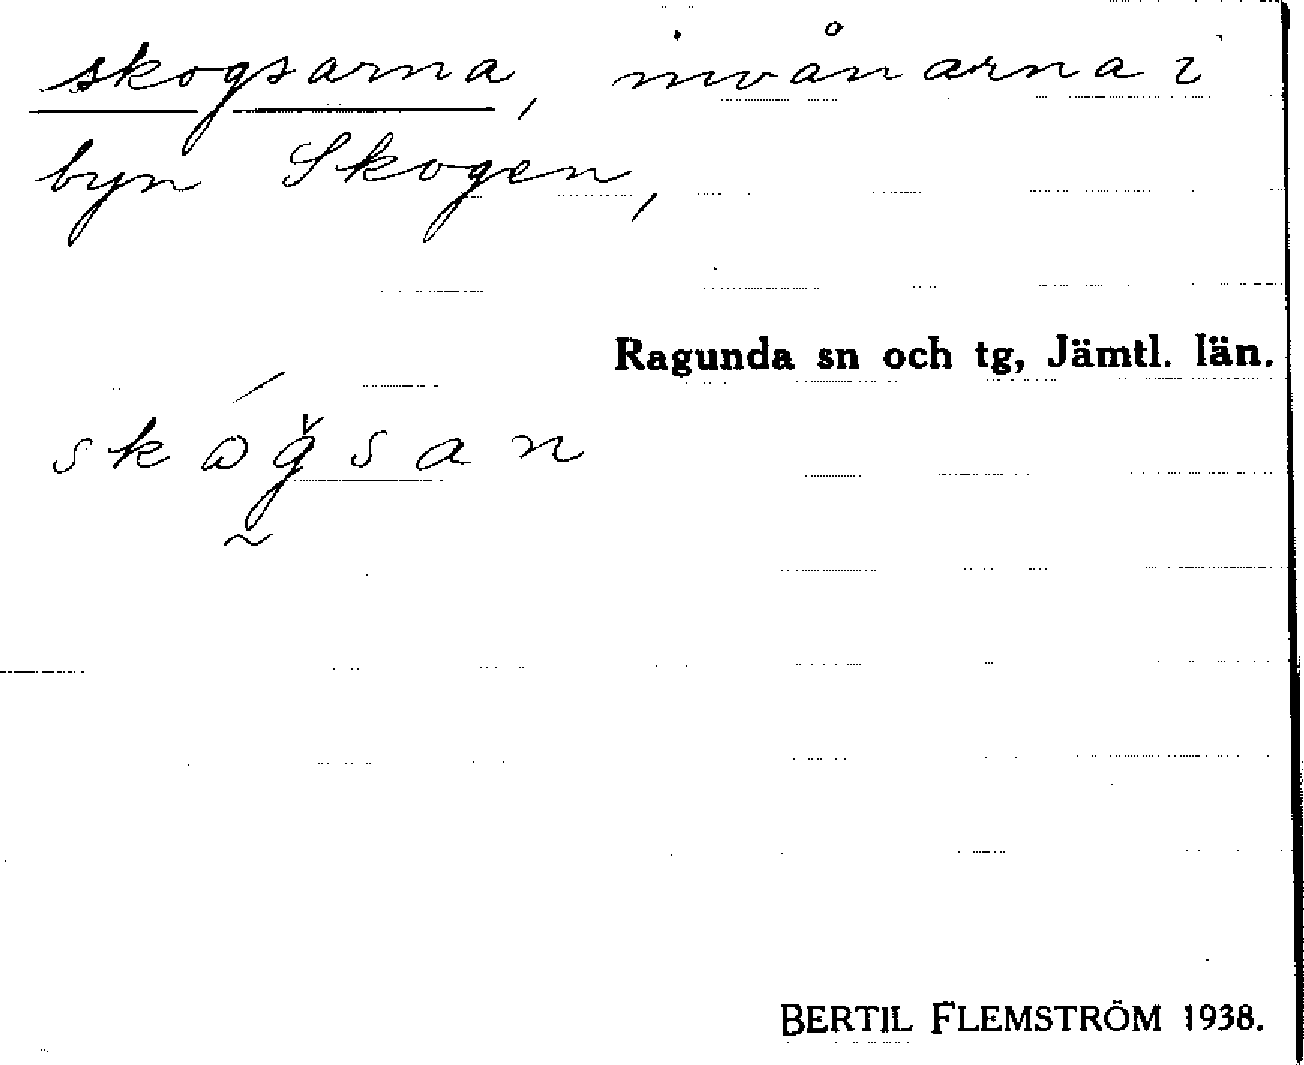 skogsarna, invånarna i
byn Skogen,
Ragunda sn och tg, Jämtl. län.
skoğsan
BERTIL FLEMSTRÖM 1938.